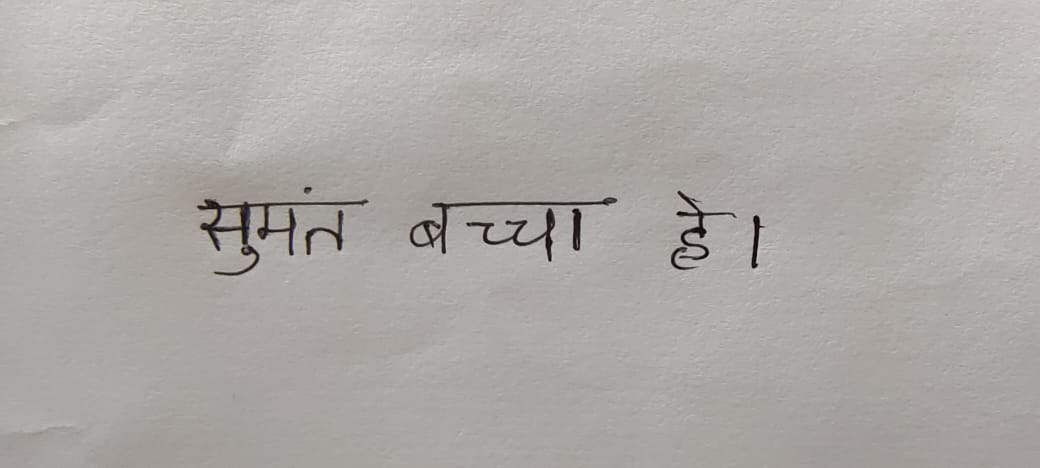 सुमंत बच्चा है।